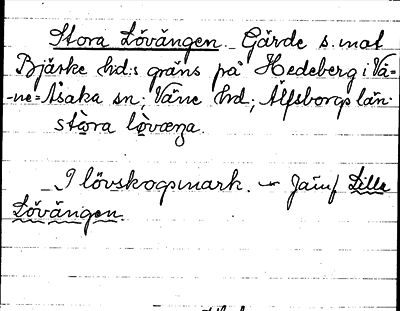 Stora Lövängen. Gärde s. mot
Bjärke hd:s gräns på Hedeberg i Vä-
-ne=Åsaka sn; Väne hd; Älfsborgs län.
stòra lö̀væŋa.
I lövskogsmark. — Jämf Lilla
Lövängen.